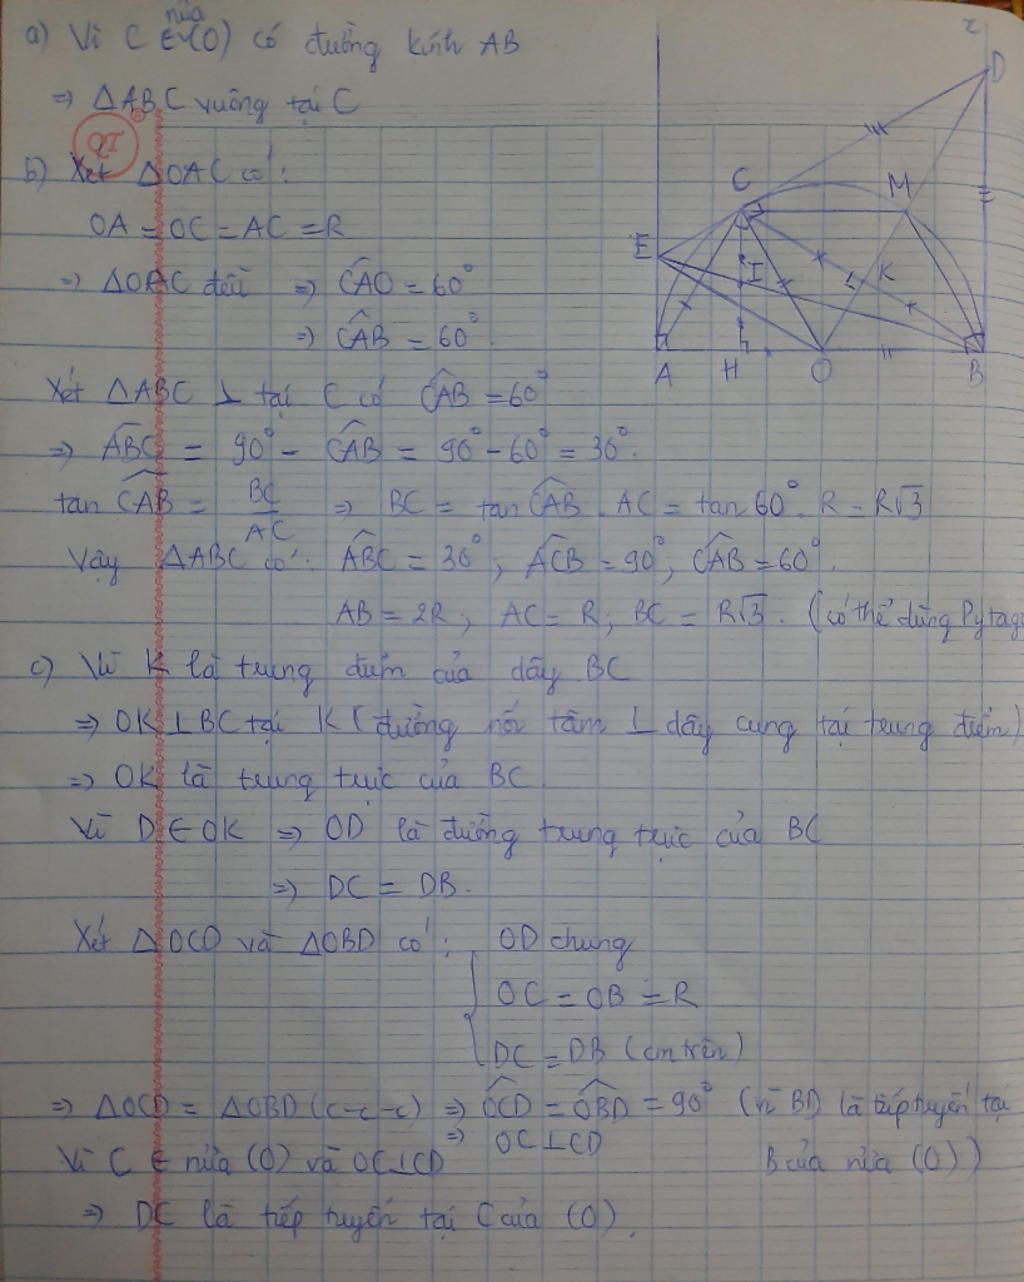 a) Vì C ∈ nửa (O) có đường kính AB
=> ΔABC vuông tại C
QT
b) Xét ΔOAC có:
OA = OC = AC = R
=> ΔOAC đều => CAO = 60°
=> CAB = 60°
Xét ΔABC ⊥ tại C có CAB = 60°
=> ABC = 90° - CAB = 90° - 60° = 30°.
tan CAB = BC/AC => BC = tan CAB . AC = tan 60° . R = R√3
Vậy ΔABC có: ABC = 30°; ACB = 90°; CAB = 60°.
AB = 2R; AC = R; BC = R√3. (có thể dùng Pytago
c) Vì K là trung điểm của dây BC
=> OK ⊥ BC tại K (đường nối tâm ⊥ dây cung tại trung điểm)
=> OK là trung trực của BC
Vì D ∈ OK => OD là đường trung trực của BC
=> DC = DB.
Xét ΔOCD và ΔOBD có: OD chung
OC = OB = R
DC = DB (cm trên)
=> ΔOCD = ΔOBD (c-c-c) => OCD = OBD = 90° (vì BD là tiếp tuyến tại
=> OC ⊥ CD
Vì C ∈ nửa (O) và OC⊥CD B của nửa (O))
=> DC là tiếp tuyến tại C của (O).
x
D
C
M
E
I
K
A
H
O
B